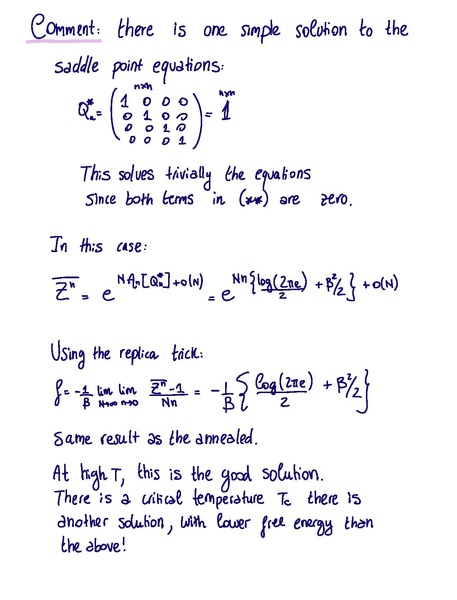 Comment: there is one simple solution to the
saddle point equations:
Qₙ* = ( 1 0 0 0 ; 0 1 0 0 ; 0 0 1 0 ; 0 0 0 1 )^{n×n} = 1^{n×n}
This solves trivially the equations
since both terms in (**) are zero.
In this case:
\overline{Z^n} = e^{N A_n[Q_n^*] + o(N)} = e^{Nn{log(2πe)/2 + β²/2} + o(N)}
Using the replica trick:
f = -1/β lim_{N→∞} lim_{n→0} (\overline{Z^n} - 1)/(Nn) = -1/β {log(2πe)/2 + β²/2}
Same result as the annealed.
At high T, this is the good solution.
There is a critical temperature Tc there is
another solution, with lower free energy than
the above!